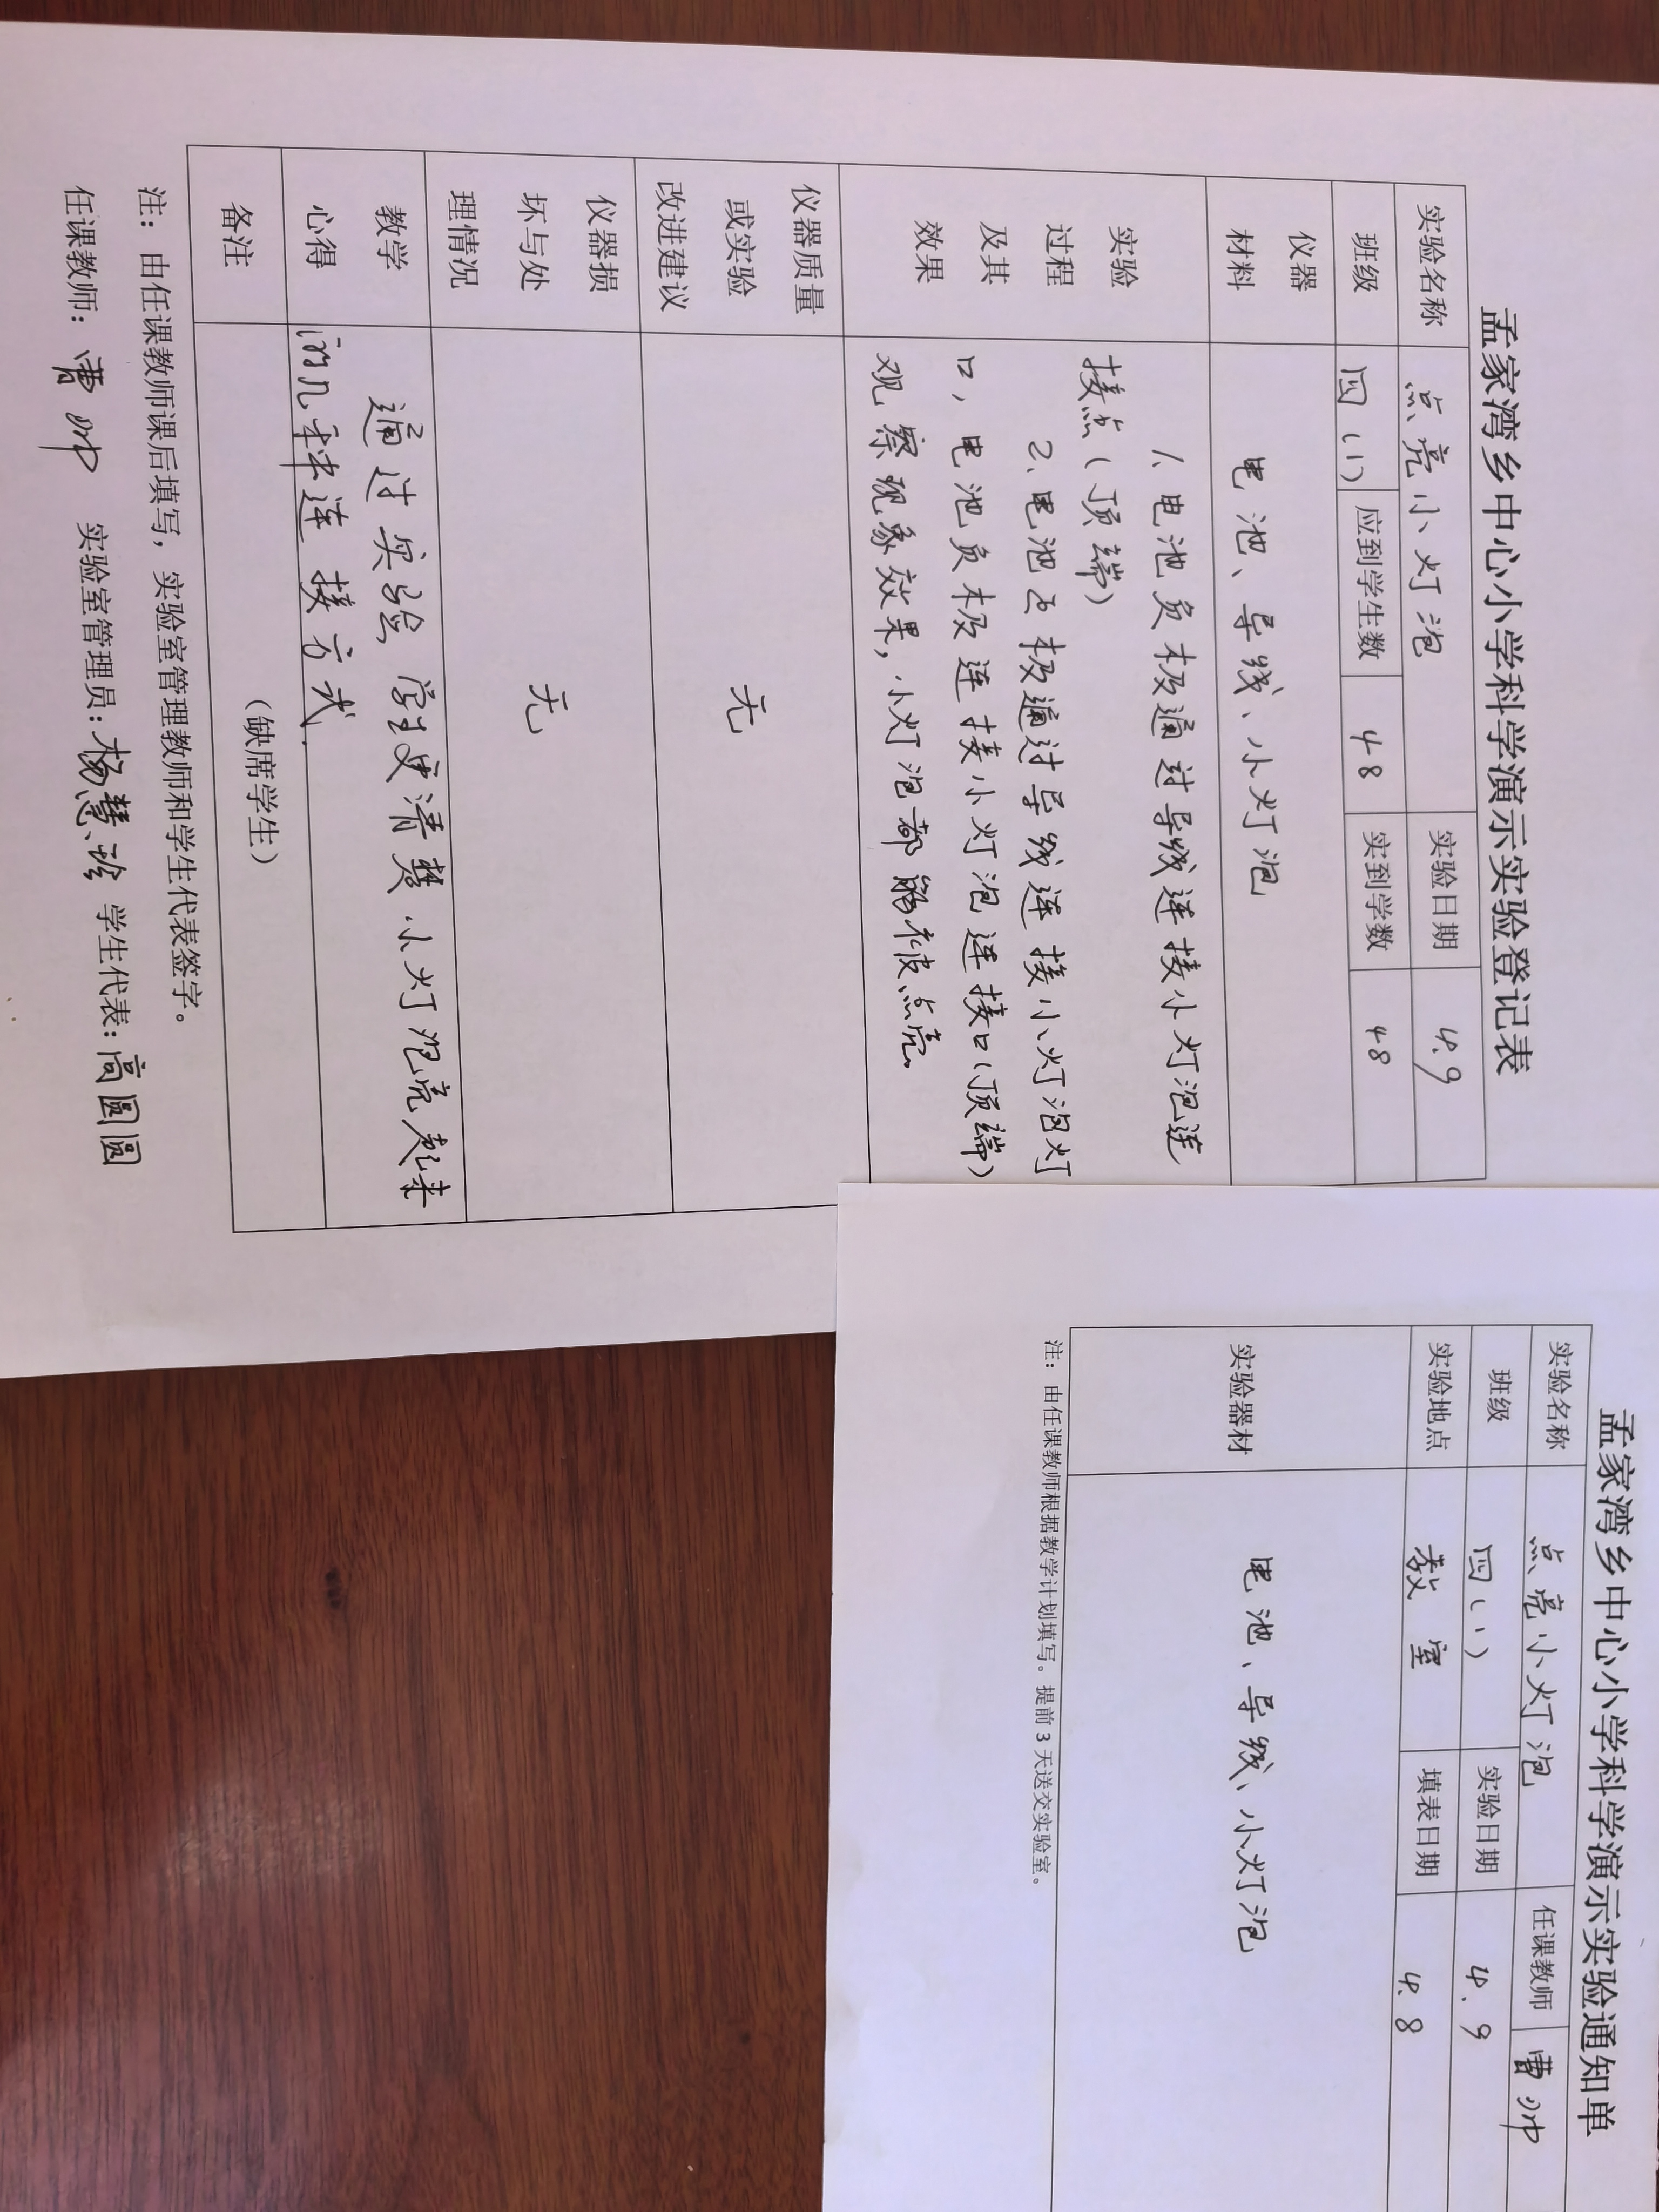 孟家湾乡中心小学科学演示实验登记表
实验名称 点亮小灯泡 实验日期 4.9
班级 四(1) 应到学生数 48 实到学数 48
仪器
材料
电池、导线、小灯泡
实验
过程
及其
效果
1、电池负极通过导线连接小灯泡连
接点(顶端)
2、电池正极通过导线连接小灯泡灯
口,电池负极连接小灯泡连接口(顶端)
观察现象效果,小灯泡都能被点亮。
仪器质量
或实验
改进建议
无
仪器损
坏与处
理情况
无
教学
心得
通过实验,学生更清楚小灯泡亮起来
的几种连接方式.
备注 (缺席学生)
注:由任课教师课后填写,实验室管理教师和学生代表签字。
任课教师:曹帅 实验室管理员:杨慧珍 学生代表:高圆圆
孟家湾乡中心小学科学演示实验通知单
实验名称 点亮小灯泡 任课教师 曹帅
班级 四(1) 实验日期 4.9
实验地点 教室 填表日期 4.8
实验器材 电池、导线、小灯泡
注:由任课教师根据教学计划填写。提前 3 天送交实验室。